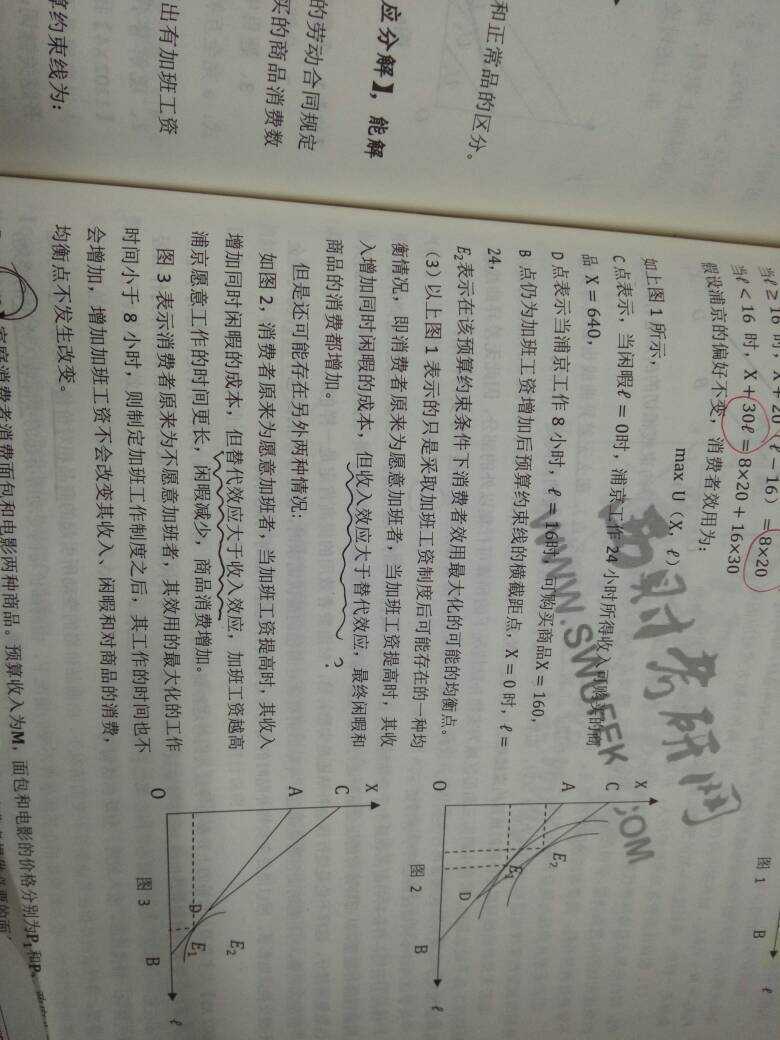 和正常品的区分。
应分解】，能解
的劳动合同规定
买的商品消费数
出有加班工资
算约束线为：
当ℓ < 16 时，X + 30ℓ = 8×20 + 16×30
假设浦京的偏好不变，消费者效用为：
max U（X，ℓ）
如上图 1 所示，
C 点表示，当闲暇ℓ = 0时，浦京工作 24 小时所得收入可购买的商
品 X = 640，
D 点表示当浦京工作 8 小时，ℓ = 16时，可购买商品X = 160，
B 点仍为加班工资增加后预算约束线的横截距点，X = 0 时，ℓ =
24，
E₂表示在该预算约束条件下消费者效用最大化的可能的均衡点。
（3）以上图 1 表示的只是采取加班工资制度后可能存在的一种均
衡情况，即消费者原来为愿意加班者，当加班工资提高时，其收
入增加同时闲暇的成本，但收入效应大于替代效应，最终闲暇和
商品的消费都增加。 ?
但是还可能存在另外两种情况：
如图 2，消费者原来为愿意加班者，当加班工资提高时，其收入
增加同时闲暇的成本，但替代效应大于收入效应，加班工资越高
浦京愿意工作的时间更长，闲暇减少，商品消费增加。
图 3 表示消费者原来为不愿意加班者，其效用的最大化的工作
时间小于 8 小时，则制定加班工作制度之后，其工作的时间也不
会增加，增加加班工资不会改变其收入、闲暇和对商品的消费，
均衡点不发生改变。
图 1
B
ℓ
X
C
A
E₂
E₁
D
O
B
ℓ
图 2
X
C
A
D
E₁
E₂
O
B
ℓ
图 3
家庭消费者消费面包和电影两种商品。预算收入为M，面包和电影的价格分别为P₁和P
WWW.SWUFEK.COM